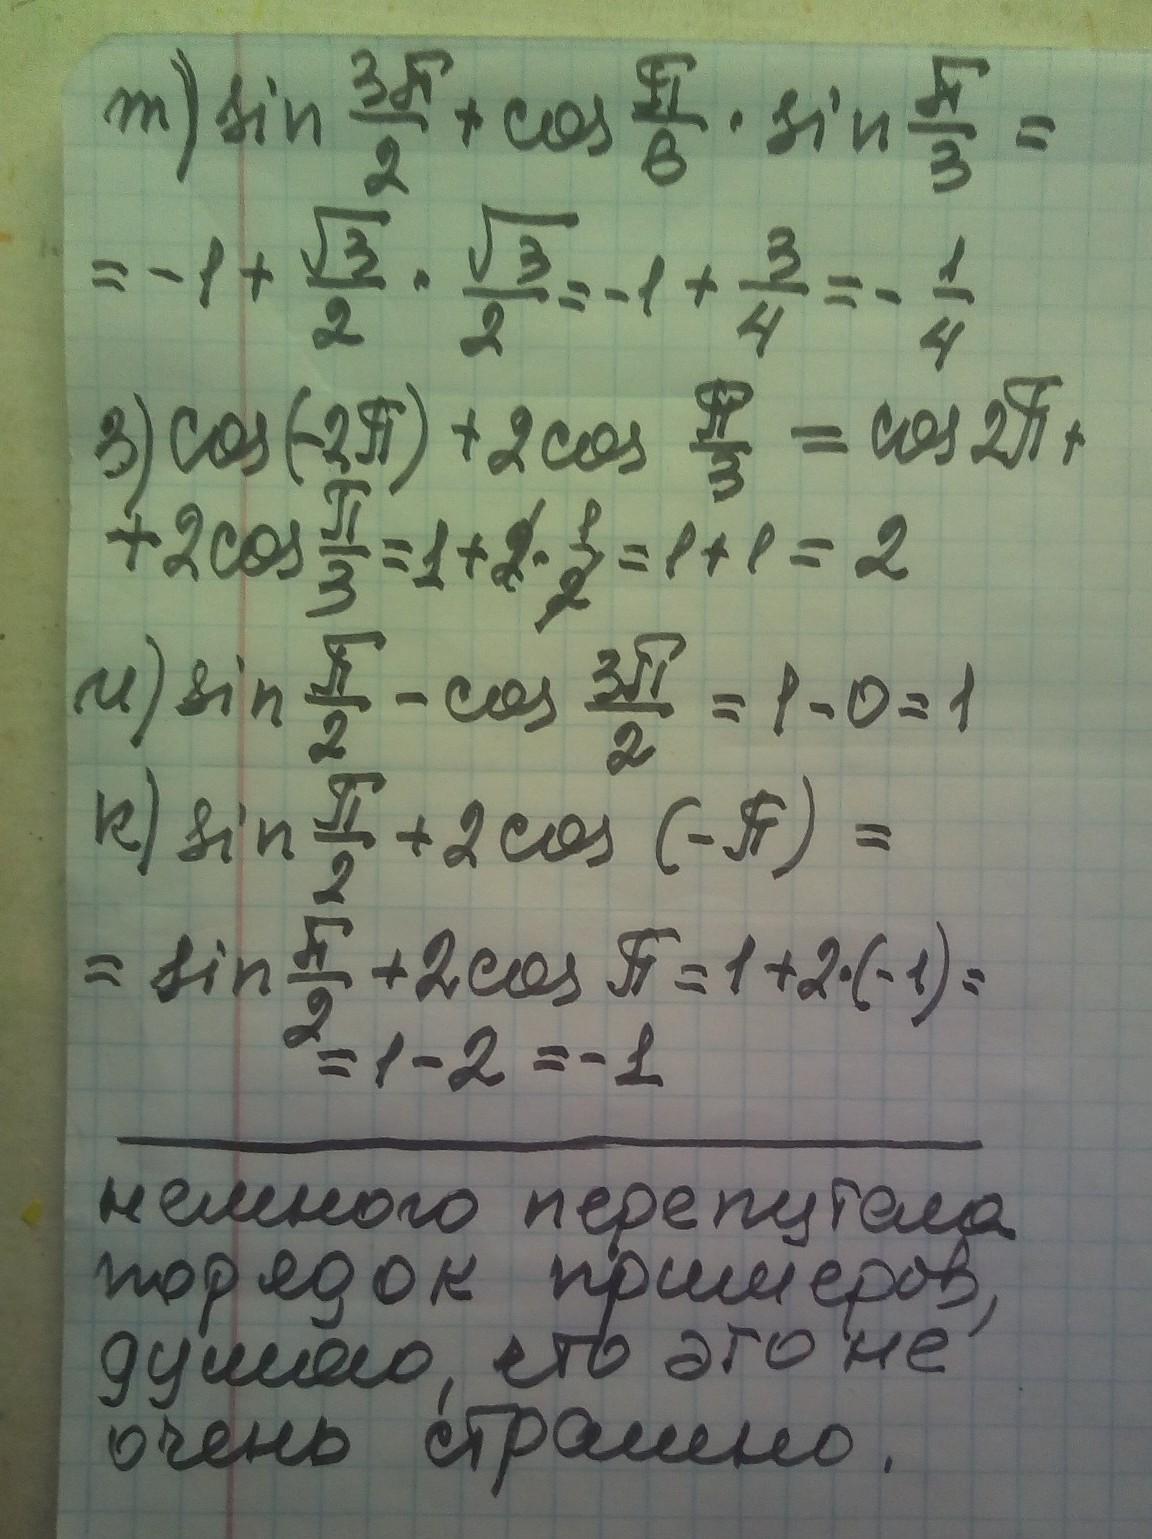 т) sin 3π/2 + cos π/6 · sin π/3 =
= -1 + √3/2 · √3/2 = -1 + 3/4 = - 1/4
з) cos(-2π) + 2cos π/3 = cos2π +
+ 2cos π/3 = 1 + 2 · 1/2 = 1 + 1 = 2
и) sin π/2 - cos 3π/2 = 1 - 0 = 1
к) sin π/2 + 2cos (-π) =
= sin π/2 + 2cos π = 1 + 2·(-1) =
= 1 - 2 = -1
немного перепутала
порядок примеров,
думаю, что это не
очень страшно.